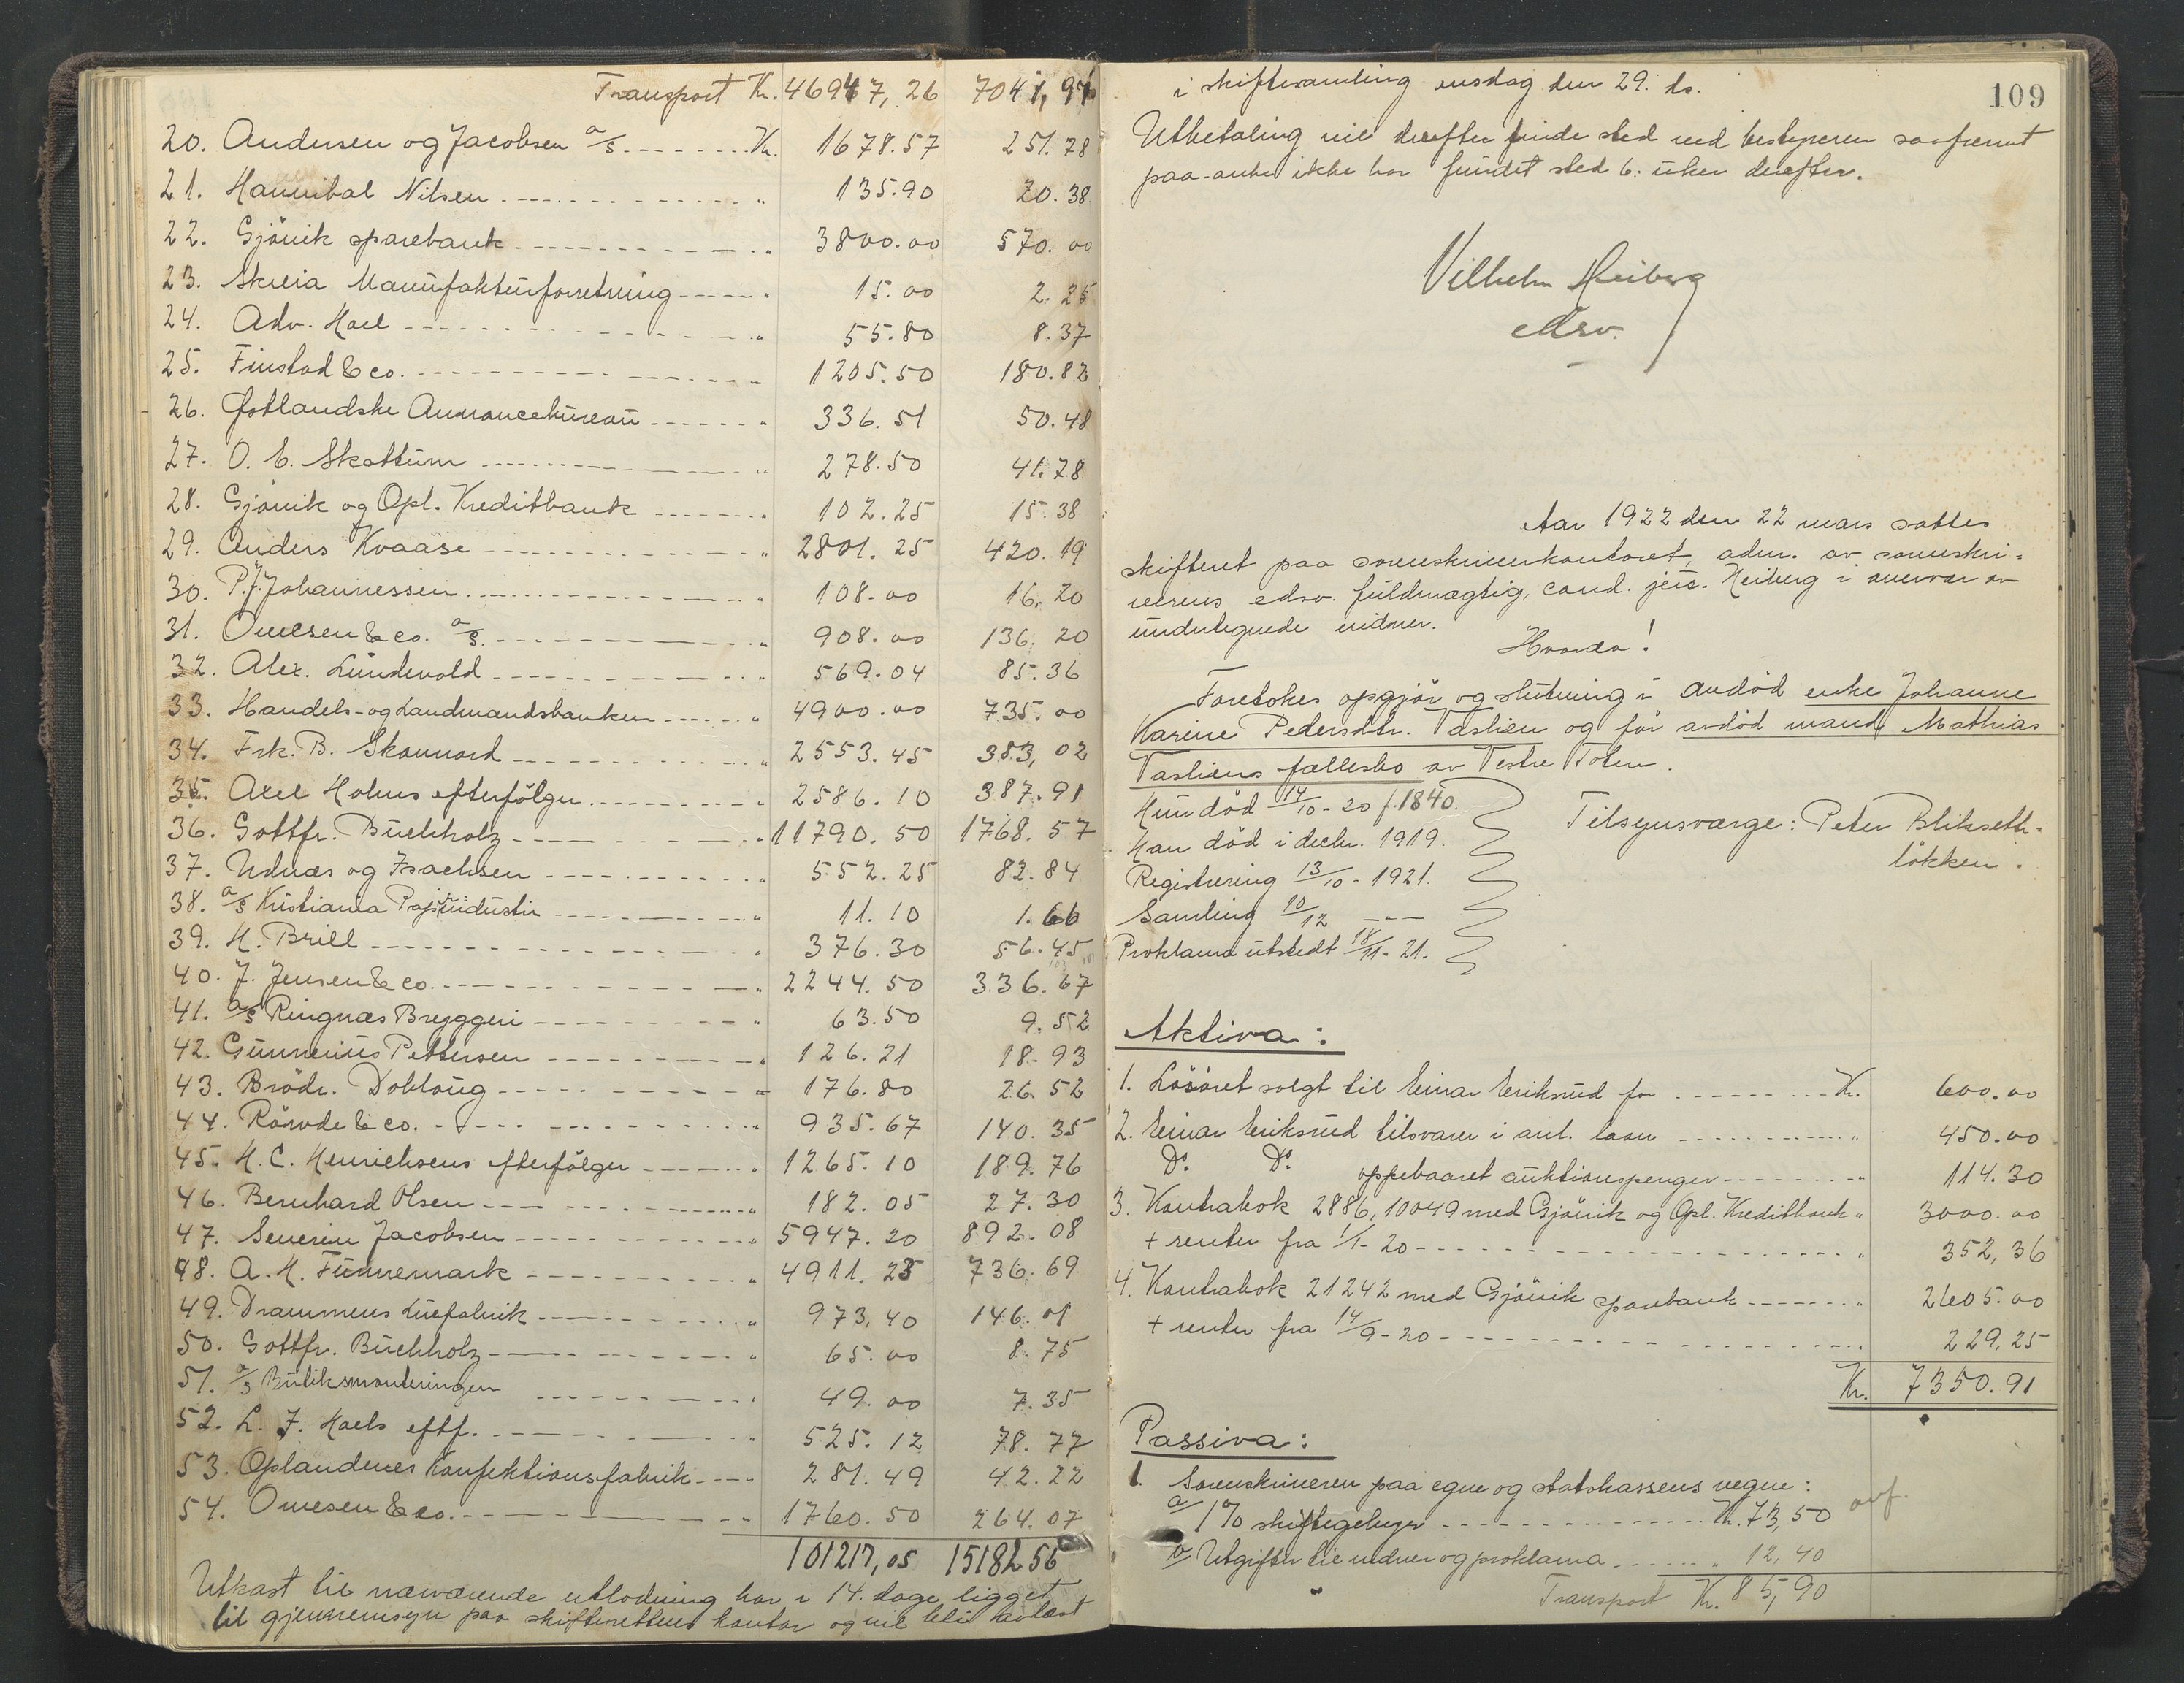 Transport Kr. 46947,26 7041,97
20. Andersen og Jacobsen a/s Kr. 1678.57 251.78
21. Hannibal Nilsen " 135.90 20.38
22. Gjövik sparebank " 3800.00 570.00
23. Skreia Manufakturforretning " 15.00 2.25
24. Adv. Hoel " 55.80 8.37
25. Finstad & co. " 1205.50 180.82
26. Østlandske Annoncebureau " 336.51 50.48
27. O. E. Skattum " 278.50 41.78
28. Gjövik og Opl. Kreditbank " 102.25 15.38
29. Anders Kvaase " 2801.25 420.19
30. P. J. Johannessen " 108.00 16.20
31. Owesen & co. a/s. " 908.00 136.20
32. Alex. Lundevold " 569.04 85.36
33. Handels- og Landmandsbanken " 4900.00 735.00
34. Frk. B. Skonnord " 2553.45 383,02
35. Axel Holms efterfölger " 2586.10 387.91
36. Gottfr. Buchholz " 11790.50 1768.57
37. Udnæs og Isachsen " 552.25 82.84
38. a/s Kristiania Papirindustri " 11.10 1.66
39. H. Brill " 376.30 56.45
40. J. Jensen & co. " 2244.50 336.67
41. a/s Ringnæs Bryggeri " 63.50 9.52
42. Gunnerius Pettersen " 126.21 18.93
43. Brödr. Dobloug " 176.80 26.52
44. Rörvde & co. " 935.67 140.35
45. H. C. Henrichsens efterfölger " 1265.10 189.76
46. Bernhard Olsen " 182.05 27.30
47. Severin Jacobsen " 5947.20 892.08
48. A. H. Funnemark " 4911.25 736.69
49. Drammens Luefabrik " 973,40 146.01
50. Gottfr. Buchholz " 65.00 8.75
51. a/s Butiksmonteringen " 49.00 7.35
52. L. J. Hoels eftf. " 525.12 78.77
53. Oplandenes Konfektionsfabrik " 281.49 42.22
54. Owesen & co. " 1760.50 264.07
101217,05 15182 56
Utkast til nærværende utlodning har i 14. dage ligget
til gjennemsyn paa skifterettens kontor og vil bli avlæst
109
i skiftesamling onsdag den 29. ds.
Utbetaling vil derefter finde sted ved bestyreren saafremt
paa-anke ikke har fundet sted 6. uker derefter.
Vilhelm Heiberg
edsv.
Aar 1922 den 22 mars sattes
skifteret paa sorenskriverkontoret, adm. av sorenskri-
verens edsv. fuldmægtig, cand. jus. Heiberg i nærvær av
undertegnede vidner.
Hvorda!
Foretokes opgjör og slutning i avdöd enke Johanne
Karine Pedersdtr. Taslien og för avdöd mand Mathias
Tasliens fællesbo av Vestre Toten.
Hun död 14/10-20 f. 1840.
Han död i decbr. 1919.
Registrering 13/10-1921.
Samling 10/12 ---
Proklama utstedt 18/11-21.
Tilsynsværge: Peter Blikseth-
lökken.
Aktiva:
1. Lösöret solgt til Einar Eriksrud for Kr. 600.00
2. Einar Eriksrud tilsvarer i ant. laan " 450.00
Do. Do. oppebaaret auktionspenger " 114.30
3. Kontrabok 2886, 10049 med Gjövik og Opl. Kreditbank " 3000.00
+ renter fra 1/1-20 " 352,36
4. Kontrabok 21242 med Gjövik sparebank " 2605.00
+ renter fra 14/9-20 " 229,25
Kr. 7350.91
Passiva:
1. Sorenskriveren paa egne og statskassens vegne:
a/ 1% skiftegebyr Kr. 73,50
b/ Utgifter til vidner og proklama " 12,40
Transport Kr. 85,90